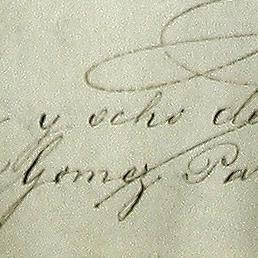 y ocho de
Gomez Pa